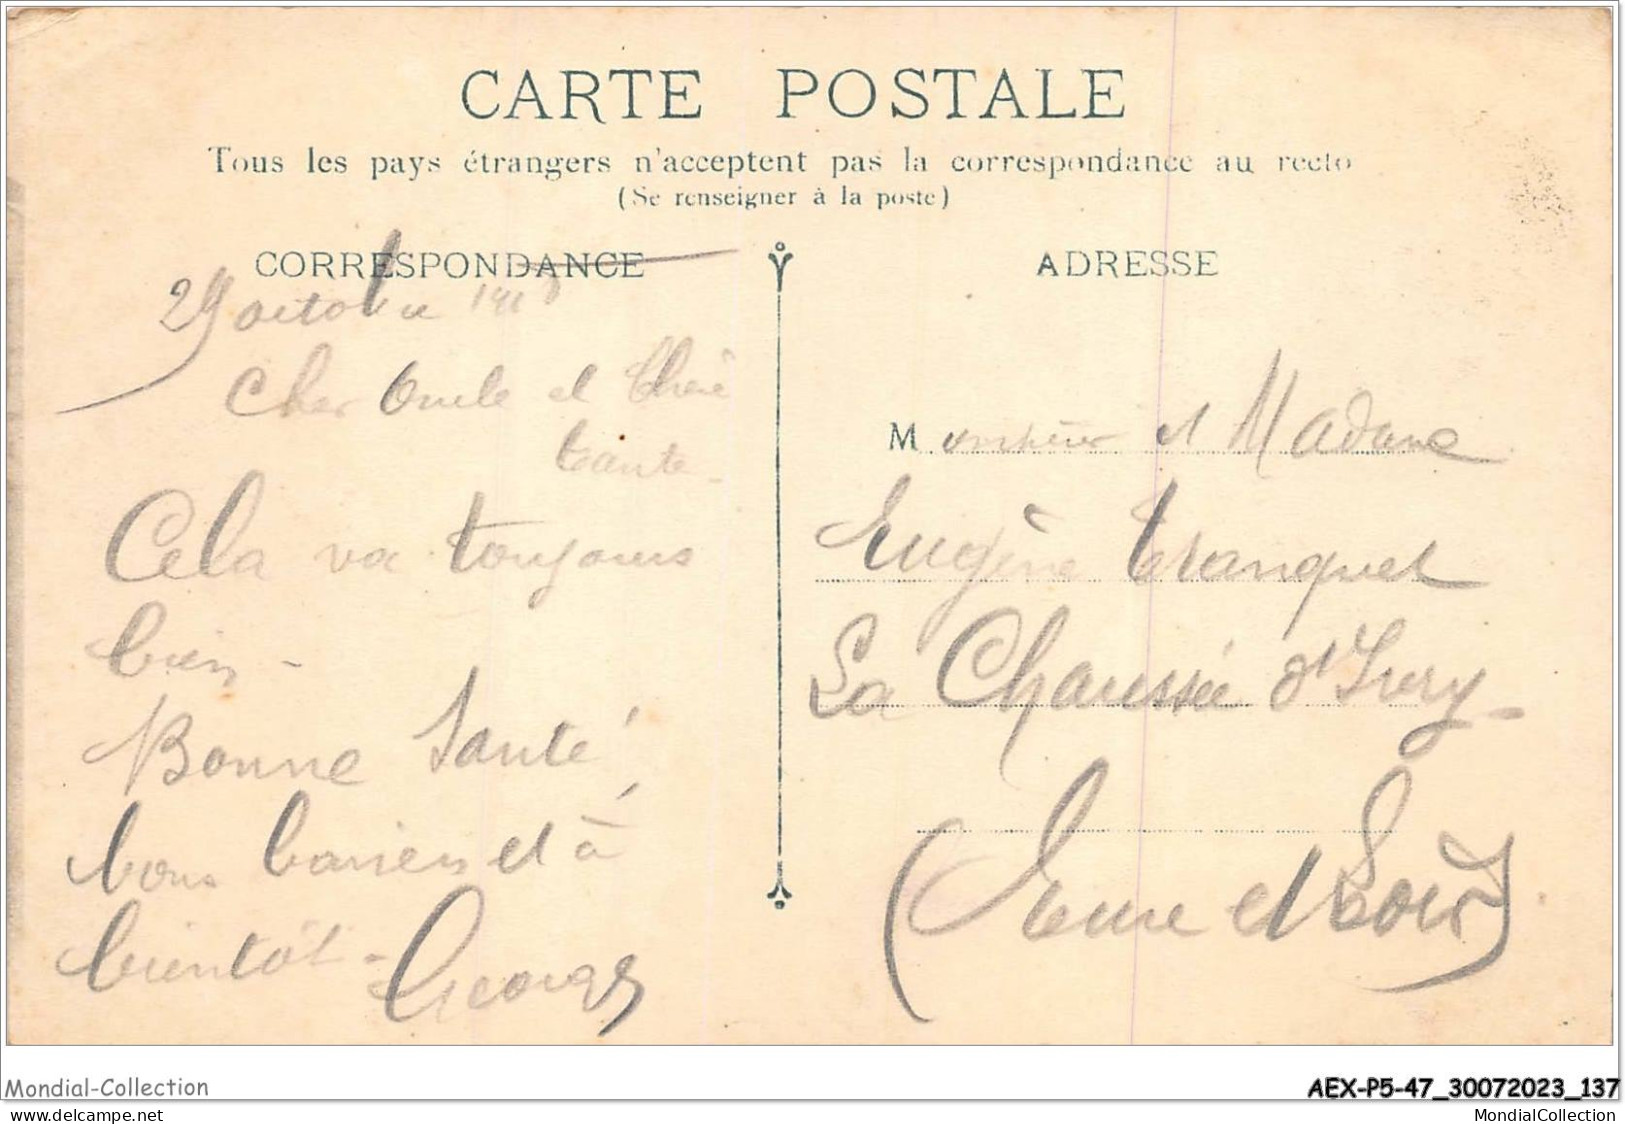 CARTE POSTALE
Tous les pays étrangers n'acceptent pas la correspondance au recto
(Se renseigner à la poste)
CORRESPONDANCE
29 octobre 1918
Cher Oncle et Chère
tante
Cela va toujours
bien -
Bonne Santé,
bons baisers et à
bientôt - Georges
ADRESSE
Monsieur et Madame
Eugène Tranquet
La Chaussée d'Ivry
(Eure et Loir)
Mondial-Collection
www.delcampe.net
AEX-P5-47_30072023_137
MondialCollection